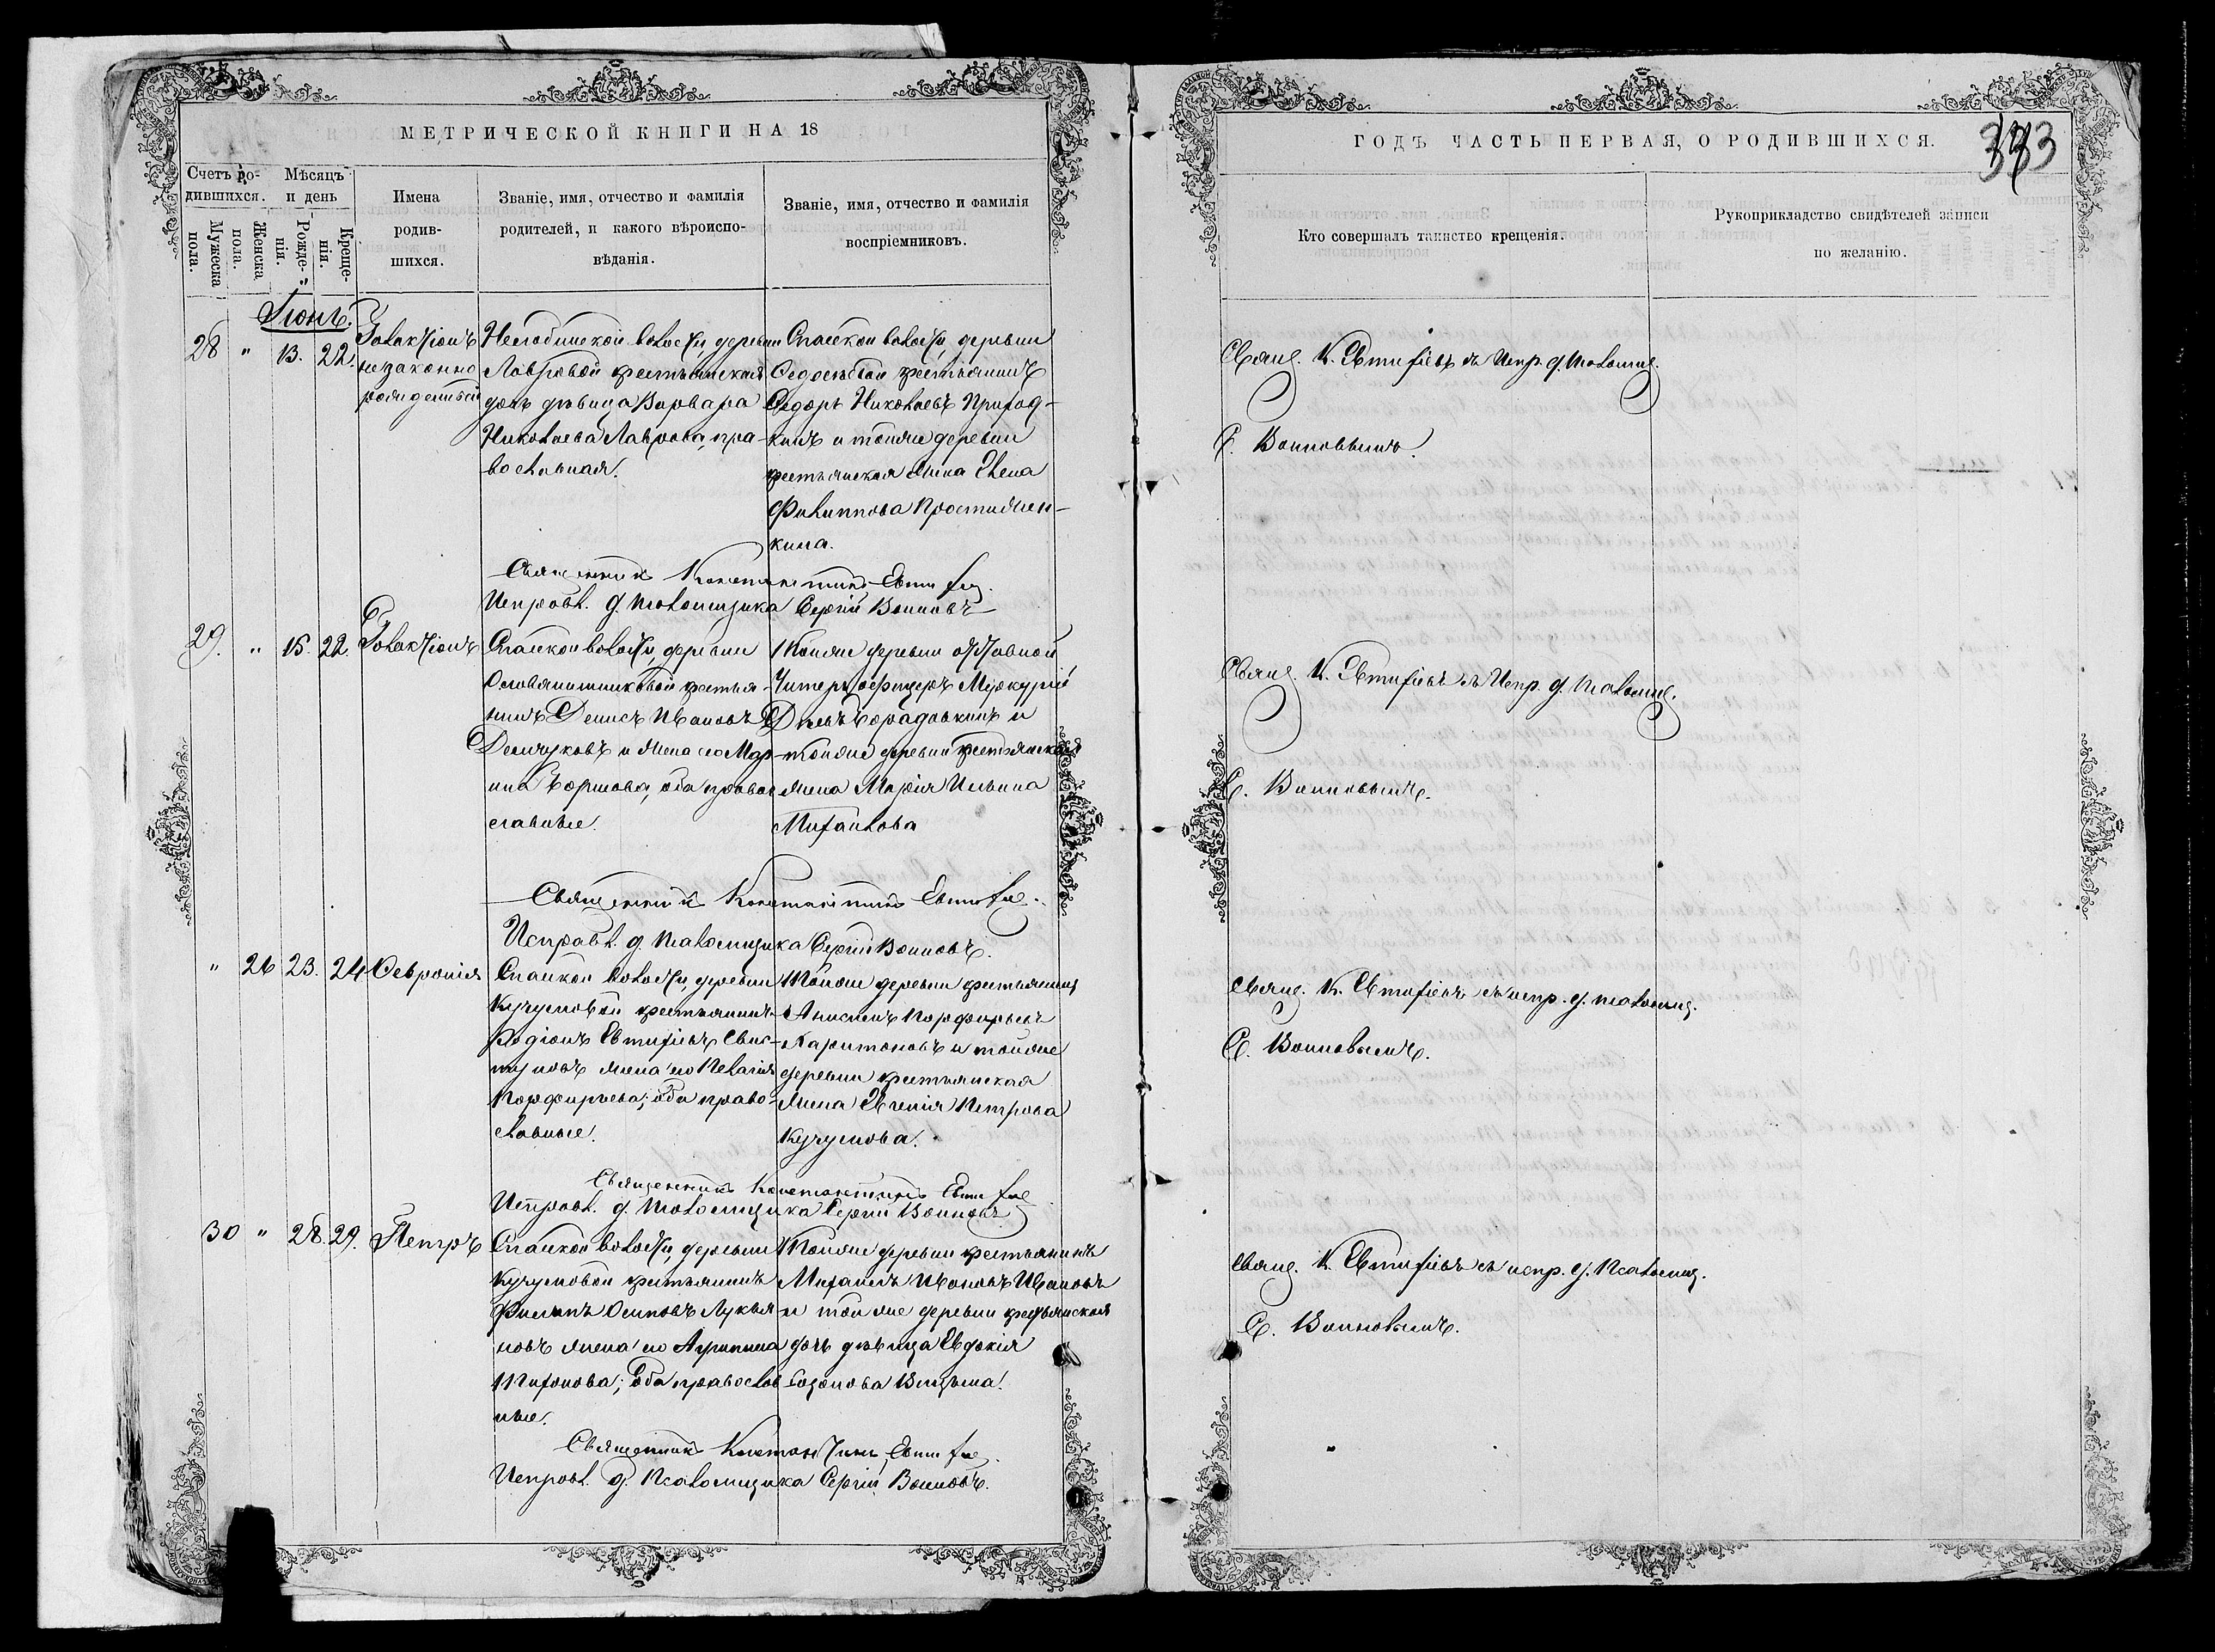 МЕТРИЧЕСКОЙ КНИГИ НА 18
Счетъ ро-
дившихся.
Мѣсяцъ
и день
Мужеска
пола.
Женска
пола.
Рожде-
нія.
Креще-
нія.
Имена
родив-
шихся.
Званіе, имя, отчество и фамилія
родителей, и какого вѣроиспо-
вѣданія.
Званіе, имя, отчество и фамилія
воспріемниковъ.
Іюнь.
28 " 13. 22.
Галактіонъ
незаконно
рожденный
волости, деревни
Лавровой крестьянская
дочь дѣвица Варвара
Николаева Лаврова, пра-
вославная.
Спасской волости, деревни
крестьянинъ
Ѳедоръ Николаевъ
и тойже деревни
крестьянская жена Елена
Филиппова
кина.
Священникъ Константинъ Евтихіе
Исправл. д. псаломщика Сергій Воиновъ
29. " 15. 22. Галактіонъ
Спасской волости, деревни
крестья-
нинъ Денисъ Ивановъ
и жена его Мар-
оба право-
славные.
Тойже деревни отставной
Унтеръ офицеръ Меркурій
и
тойже деревни крестьянская
жена Марія Ильина
Михайлова
Священникъ Константинъ Евтихіе.
Исправл. д. псаломщика Сергій Воиновъ.
" 26 23. 24 Февронія
Спасской волости, деревни
Кучумовой крестьянинъ
Родіонъ Евтихіевъ Свис-
туновъ жена его Пелагія
Порфирьева; оба право-
славные.
Тойже деревни крестьянинъ
Анисимъ Порфирьевъ
Харитоновъ и тойже
деревни крестьянская
жена Евгенія Петрова
Кучумова.
Священникъ Константинъ Евтихіе
Исправл. д. псаломщика Сергій Воиновъ
30 " 28. 29. Петръ
Спасской волости, деревни
Кучумовой крестьянинъ
Филипъ Осиповъ Лукья-
новъ жена его Агрипина
Тихонова; оба православ-
ные.
Тойже деревни крестьянинъ
Михаилъ Ивановъ Ивановъ
и тойже деревни крестьянская
дочь дѣвица Евдокія
Священникъ Константинъ Евтихіе.
Исправл. д. Псаломщика Сергій Воиновъ.
ГОДЪ ЧАСТЬ ПЕРВАЯ, О РОДИВШИХСЯ.
Кто совершалъ таинство крещенія.
Рукоприкладство свидѣтелей записи
по желанію.
Свящ. К. Евтихіевъ съ Испр. д. псаломщ.
С. Воиновымъ.
Свящ. К. Евтихіевъ съ Испр. д. псаломщ.
С. Воиновымъ.
Свящ. К. Евтихіевъ съ испр. д. псаломщ.
С. Воиновымъ.
Свящ. К. Евтихіевъ съ испр. д. Псаломщ.
С. Воиновымъ.